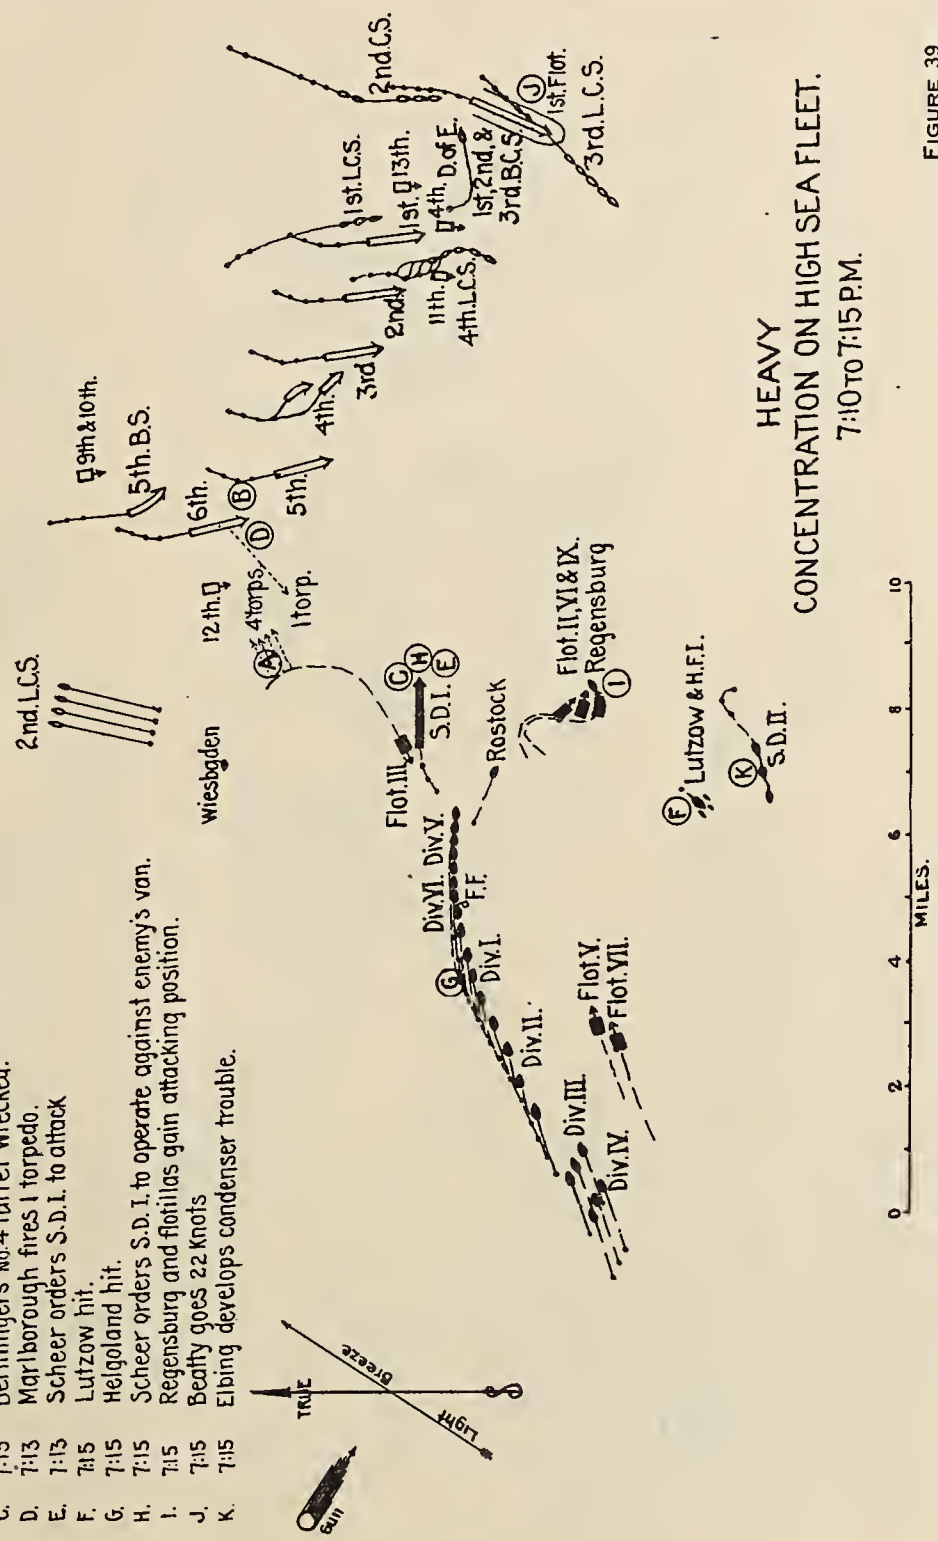 C. 7:13 Derfflinger's No. 4 turret wrecked.
D. 7:13 Marlborough fires 1 torpedo.
E. 7:13 Scheer orders S.D.I. to attack
F. 7:15 Lutzow hit.
G. 7:15 Helgoland hit.
H. 7:15 Scheer orders S.D.I. to operate against enemy's van.
I. 7:15 Regensburg and flotillas gain attacking position.
J. 7:15 Beatty goes 22 Knots
K. 7:15 Elbing develops condenser trouble.
SUN
TRUE
Light Breeze
2nd. L.C.S.
Wiesbaden
9th & 10th.
5th. B.S.
6th.
B
5th.
D
12th.
4 torps.
1 torp.
A
4th.
3rd
2nd
11th.
4th. L.C.S.
1st. L.C.S.
1st.
13th.
4th.
D. of E.
1st, 2nd, &
3rd. B.C.S.
2nd. C.S.
J
1st. Flot.
3rd. L.C.S.
Flot. III.
C
H
E
S.D. I.
Rostock
Flot. II, VI & IX.
Regensburg
I
Div. VI. Div. V.
F.F.
G
Div. I.
Div. II.
Div. III.
Div. IV.
Flot. V.
Flot. VII.
F
Lutzow & H.F. I.
K
S.D. II.
HEAVY
CONCENTRATION ON HIGH SEA FLEET.
7:10 TO 7:15 P.M.
0 2 4 6 8 10
MILES.
FIGURE 39